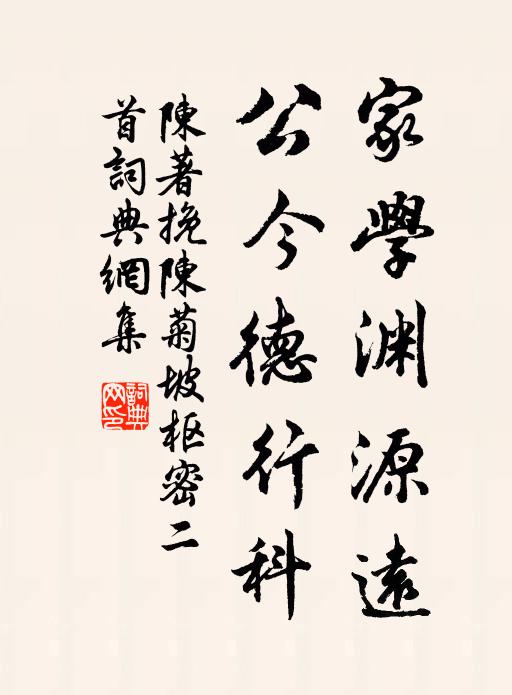 家學渊源遠
公今德行科
陳著挽陳菊坡枢密二
首詞典網集
詞典
网印